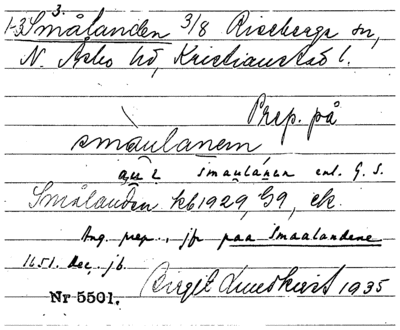 3.
1-3 Smålanden 3/8 Riseberga sn,
N. Åsbo hd, Kristianstad l.
Prep. på
småulanem
au i smaulánen enl. G. S.
Smålanden kb 1929, G9, ek.
Ang. prep., jfr paa Smaalandene
1651. dec. jb.
Birgit Lundkvist 1935
Nr 5501.